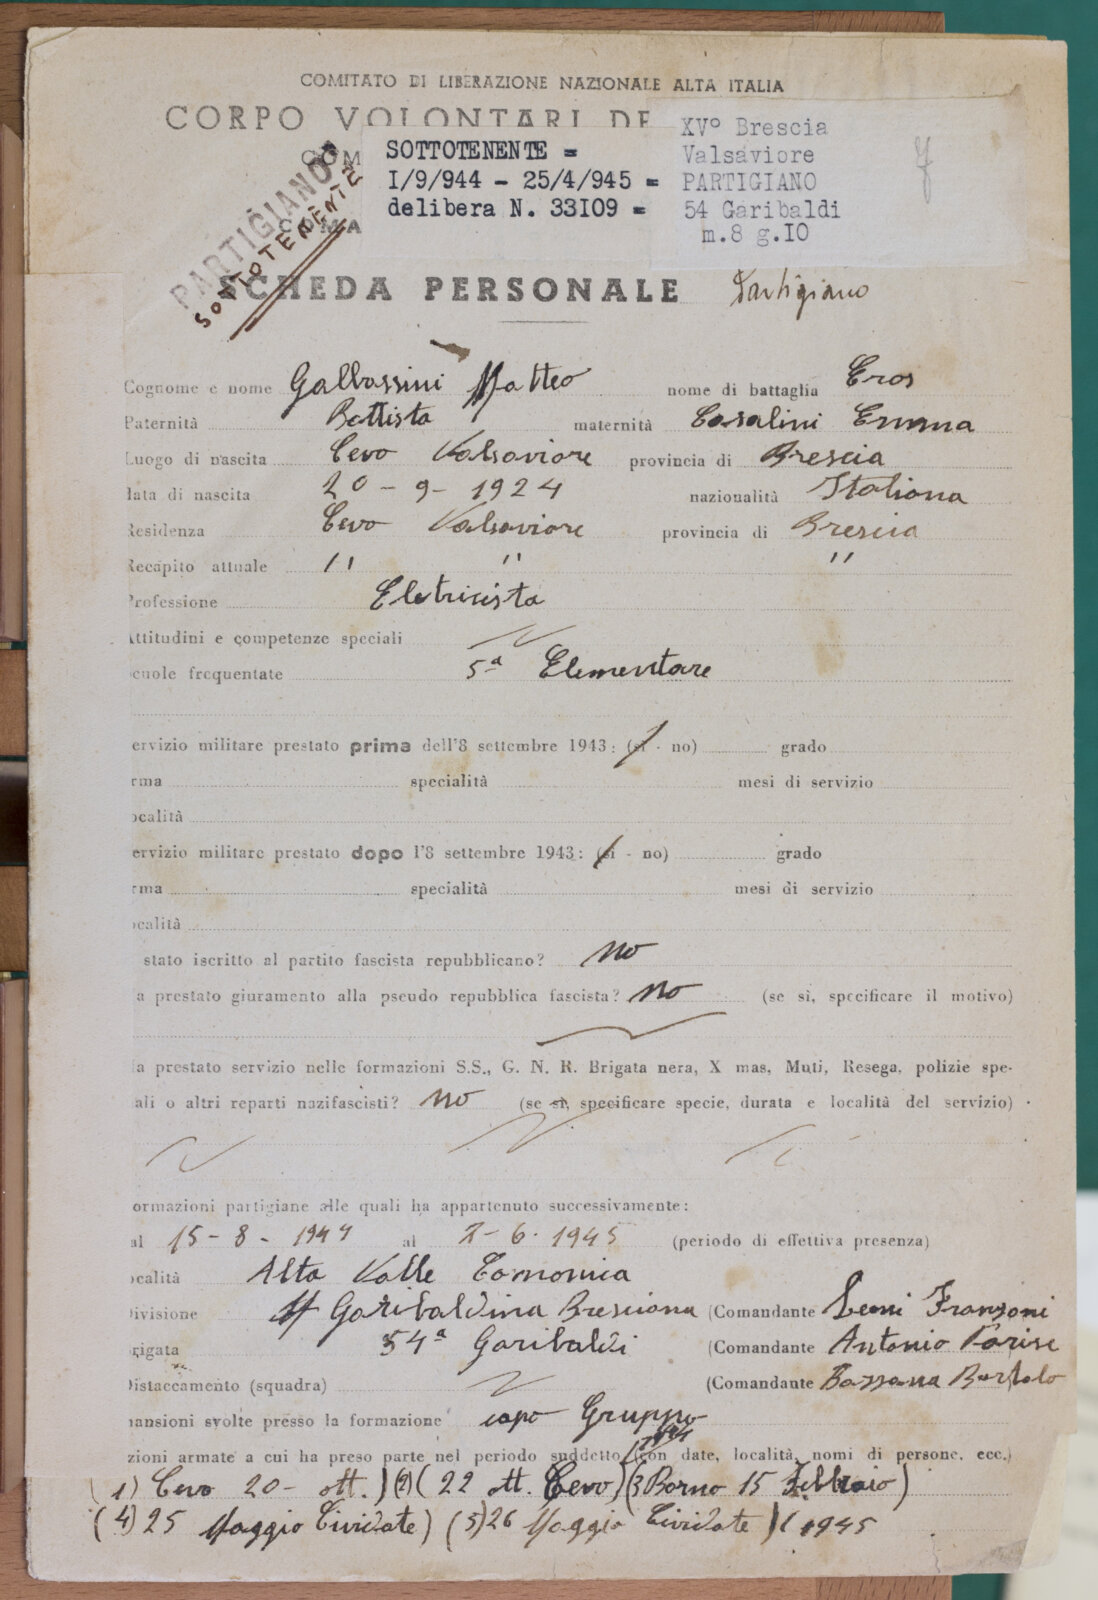 COMITATO DI LIBERAZIONE NAZIONALE ALTA ITALIA
CORPO VOLONTARI DE
COM
MA
SOTTOTENENTE =
I/9/944 - 25/4/945 =
delibera N. 33I09 =
XV° Brescia
Valsaviore
PARTIGIANO
54 Garibaldi
m.8 g.IO
PARTIGIANO
SOTTOTENENTE
SCHEDA PERSONALE Partigiano
Cognome e nome Galbassini Matteo nome di battaglia Eros
Paternità Battista maternità Casalini Emma
Luogo di nascita Cevo Valsaviore provincia di Brescia
data di nascita 20 - 9 - 1924 nazionalità Italiana
Residenza Cevo Valsaviore provincia di Brescia
Recapito attuale " " "
Professione Eletricista
Attitudini e competenze speciali
cuole frequentate 5ª Elementare
ervizio militare prestato prima dell'8 settembre 1943: (sì - no) grado
rma specialità mesi di servizio
ocalità
ervizio militare prestato dopo l'8 settembre 1943: (sì - no) grado
rma specialità mesi di servizio
ocalità
stato iscritto al partito fascista repubblicano? no
a prestato giuramento alla pseudo repubblica fascista? no (se sì, specificare il motivo)
a prestato servizio nelle formazioni S.S., G. N. R. Brigata nera, X mas, Muti, Resega, polizie spe-
ali o altri reparti nazifascisti? no (se sì, specificare specie, durata e località del servizio)
ormazioni partigiane alle quali ha appartenuto successivamente:
al 15 - 8 - 1944 al 2 - 6 - 1945 (periodo di effettiva presenza)
ocalità Alta Valle Camonica
Divisione Garibaldina Bresciana (Comandante Leni Franzoni
rigata 54ª Garibaldi (Comandante Antonio Parise
Distaccamento (squadra) (Comandante Bazzana Bortolo
mansioni svolte presso la formazione capo Gruppo
zioni armate a cui ha preso parte nel periodo suddetto (con date, località, nomi di persone, ecc.)
1944
(1) Cevo 20 - ott.) (2) (22 ott. Cevo) (3 Borno 15 Febbraio)
(4) 25 Maggio Cividate) (5) 26 Maggio Cividate) 1945